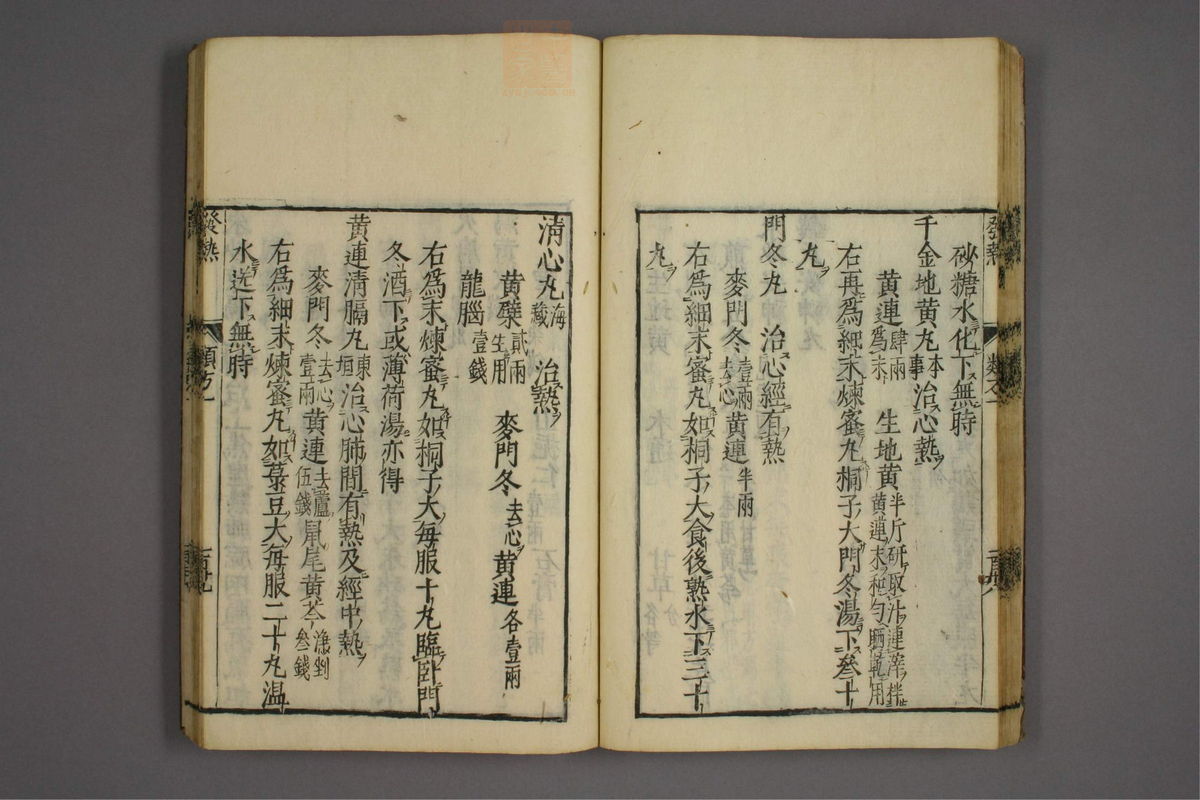 砂糖水化下無時
千金地黄丸本事治心熱
黄連肆兩爲末 生地黄半斤研取汁連滓拌黄連末和勻晒乾用
右再爲細末煉蜜丸桐子大門冬湯下叁十
丸
門冬丸 治心經有熱
麥門冬壹兩去心黄連半兩
右爲細末蜜丸如桐子大食後熟水下三十
丸
清心丸海藏 治熱
黄蘗貳兩生用 麥門冬去心黄連各壹兩
龍腦壹錢
右爲末煉蜜丸如桐子大每服十丸臨臥門
冬酒下或薄荷湯亦得
黄連清膈丸東垣治心肺間有熱及經中熱
麥門冬壹兩去心黄連去蘆伍錢鼠尾黄芩淨剉叁錢
右爲細末煉蜜丸如菉豆大每服二十丸温
水送下無時
發熱 類方